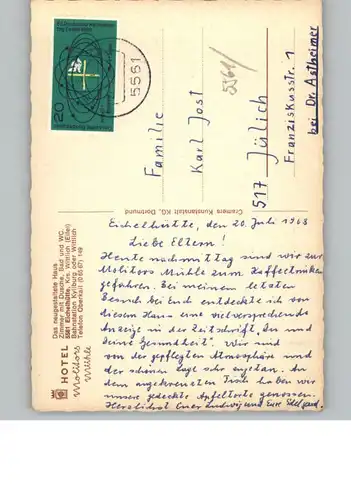 Eichelhütte, den 20. Juli 1968
Liebe Eltern!
Heute nachmittag sind wir zur
Molitors Mühle zum Kaffeetrinken
gefahren. Bei meinem letzten
Besuch bei Euch entdeckte ich von
diesem Haus eine vielversprechende
Anzeige in der Zeitschrift "Du und
Deine Gesundheit". Wir sind
von der gepflegten Atmosphäre und
der schönen Lage sehr angetan. An
dem angekreuzten Tisch haben wir
unsere gedeckte Apfeltorte genossen.
Herzlichst Euer Ludwig und Eure Edelgard.
Familie
Karl Jost
517 Jülich
Franziskusstr. 1
bei Dr. Astheimer
5561/
5561
20
Cramers Kunstanstalt KG, Dortmund
HOTEL
Molitors
Mühle
Das neugestaltete Haus
Zimmer mit Dusche, Bad und WC
5561 Eichelhütte, Krs. Wittlich (Eifel)
Bahnstation Kyllburg oder Wittlich
Telefon Oberkail (0 65 67) 149